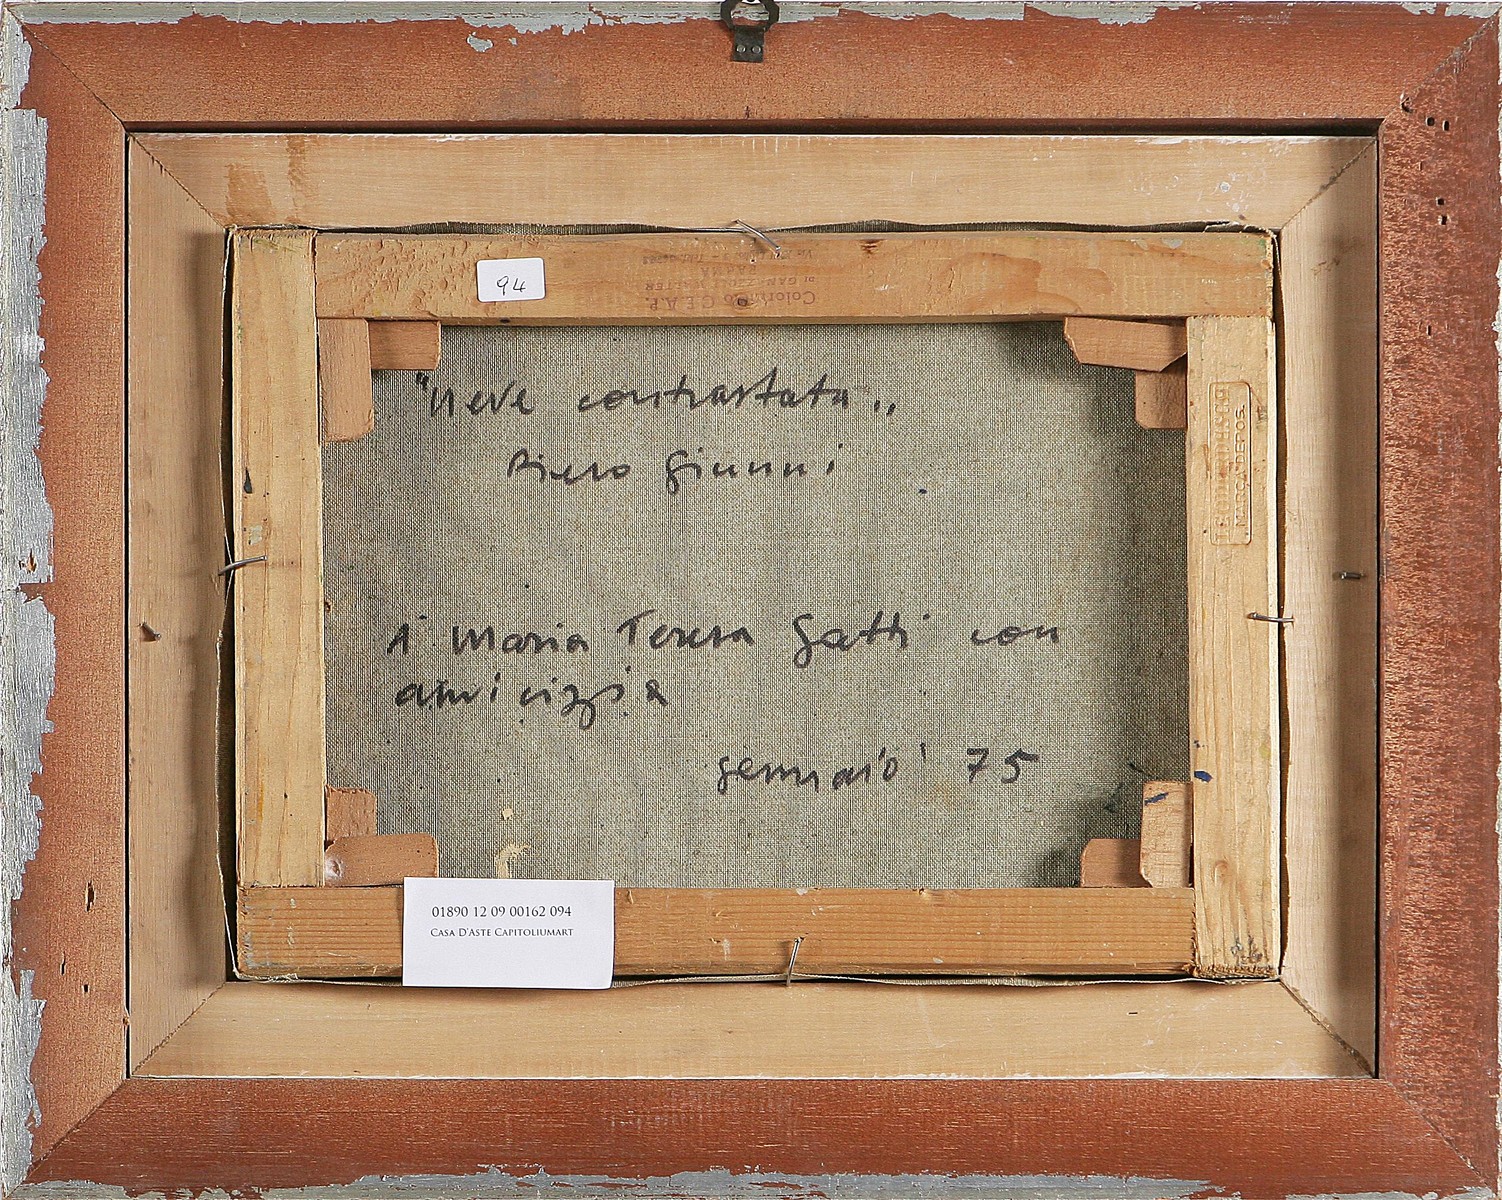 94
Colorificio C.E.A.P.
DI GANAZZOLI WALTER
PARMA
"Neve contrastata"
Piero Giunni
A Maria Teresa Gatti con
amicizia
gennaio 75
MARCA DEPOS.
01890 12 09 00162 094
CASA D'ASTE CAPITOLIUMART